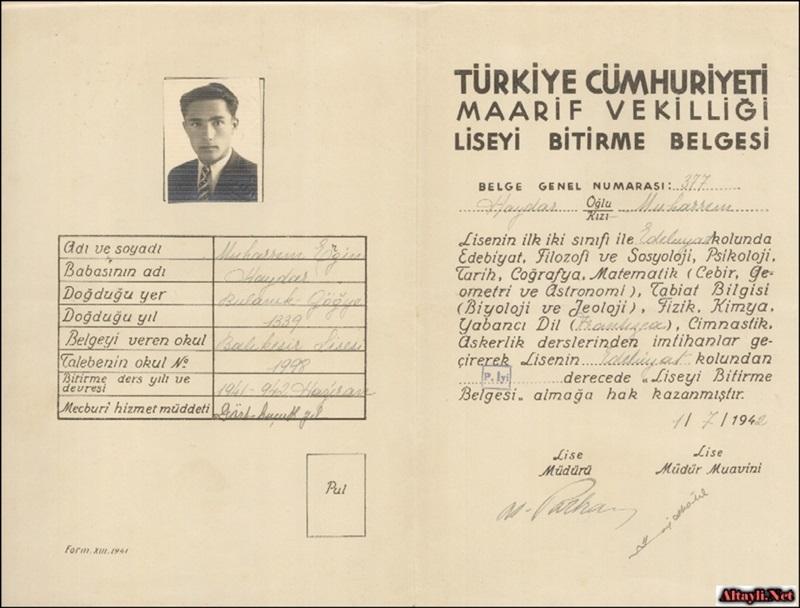 Adı ve soyadı Muharrem Ergin
Babasının adı Haydar
Doğduğu yer Bulanık-Göğye
Doğduğu yıl 1339
Belgeyi veren okul Balıkesir Lisesi
Talebenin okul № 1998
Bitirme ders yılı ve
devresi 1941-942 Haziran
Mecburi hizmet müddeti
Pul
Form. XIII. 1941
TÜRKİYE CÜMHURİYETİ
MAARİF VEKİLLİĞİ
LİSEYİ BİTİRME BELGESİ
BELGE GENEL NUMARASI: 377
Haydar Oğlu Muharrem
Kızı
Lisenin ilk iki sınıfı ile Edebiyat kolunda
Edebiyat, Filozofi ve Sosyoloji, Psikoloji,
Tarih, Coğrafya, Matematik (Cebir, Ge-
ometri ve Astronomi), Tabiat Bilgisi
(Biyoloji ve Jeoloji), Fizik, Kimya,
Yabancı Dil (Fransızca), Cimnastik,
Askerlik derslerinden imtihanlar ge-
çirerek Lisenin Edebiyat kolundan
P. İyi derecede „Liseyi Bitirme
Belgesi„ almağa hak kazanmıştır.
1/7/1942
Lise
Müdürü
Lise
Müdür Muavini
Altayli.Net